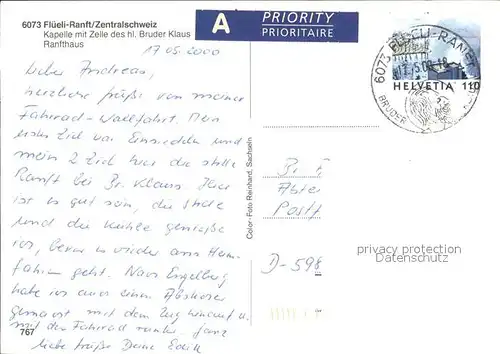 6073 Flüeli-Ranft/Zentralschweiz
Kapelle mit Zelle des hl. Bruder Klaus
Ranfthaus
17.05.2000
Lieber Andreas,
herzliche Grüße von meiner
Fahrrad-Wallfahrt. Mein
erstes Ziel war Einsiedeln und
mein 2. Ziel war die stille
Ranft bei Br. Klaus. Hier
ist es gut sein, die Stille
und die Kühle genieße
ich, bevor es wieder ans Heim-
fahren geht. Nach Engelberg
habe ich auch einen Abstecher
gemacht mit dem Zug hinauf u.
mit dem Fahrrad runter. Ganz
liebe Grüße Deine Edith
767
Color-Foto Reinhard, Sachseln
A PRIORITY
PRIORITAIRE
6073 FLÜELI-RANFT
BRUDER
HELVETIA 110
Br.
Abtei
Postf
D-598
privacy protection
Datenschutz